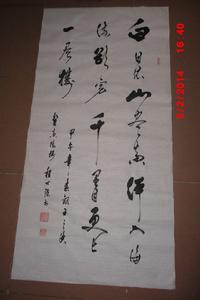 白日依山尽黄河入海
流欲穷千里目更上
一层楼
甲午年
9/2/2014 16:40